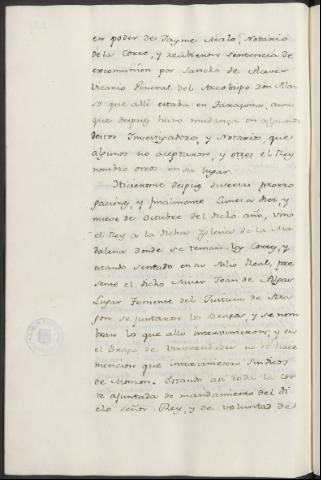 en poder de Jayme Malo, Notario
de la Corte, y recibieron sentencia de
excomunion por Sancho de Acever
vicario General del Arzobispo Don Alon
so que alli estaba en Zaragoza, aun
que despues huvo mudanza en algunos
destos Investigadores, y Notarios, que
algunos no aceptaron, y otros el Rey
nombro otros en su lugar.
Hicieronse despues diversas proro
gaciones, y finalmente Lunes a diez, y
nueve de Octubre del dicho año, vino
el Rey a la dicha Yglesia de la Ma
dalena donde se tenian las Cortes, y
estando sentado en su Solio Real, pre
sente el dicho Micer Joan de
Lugar Teniente del Justicia de Ara
gon se juntaron los Brazos, y se nom
bran los que alli intervinieron; y en
el Brazo de Universidades no se hace
mencion que interviniesen Sindicos
de Monzon. Estando assi toda la cor
te ajuntada de mandamiento del di
cho señor Rey, y de voluntad de